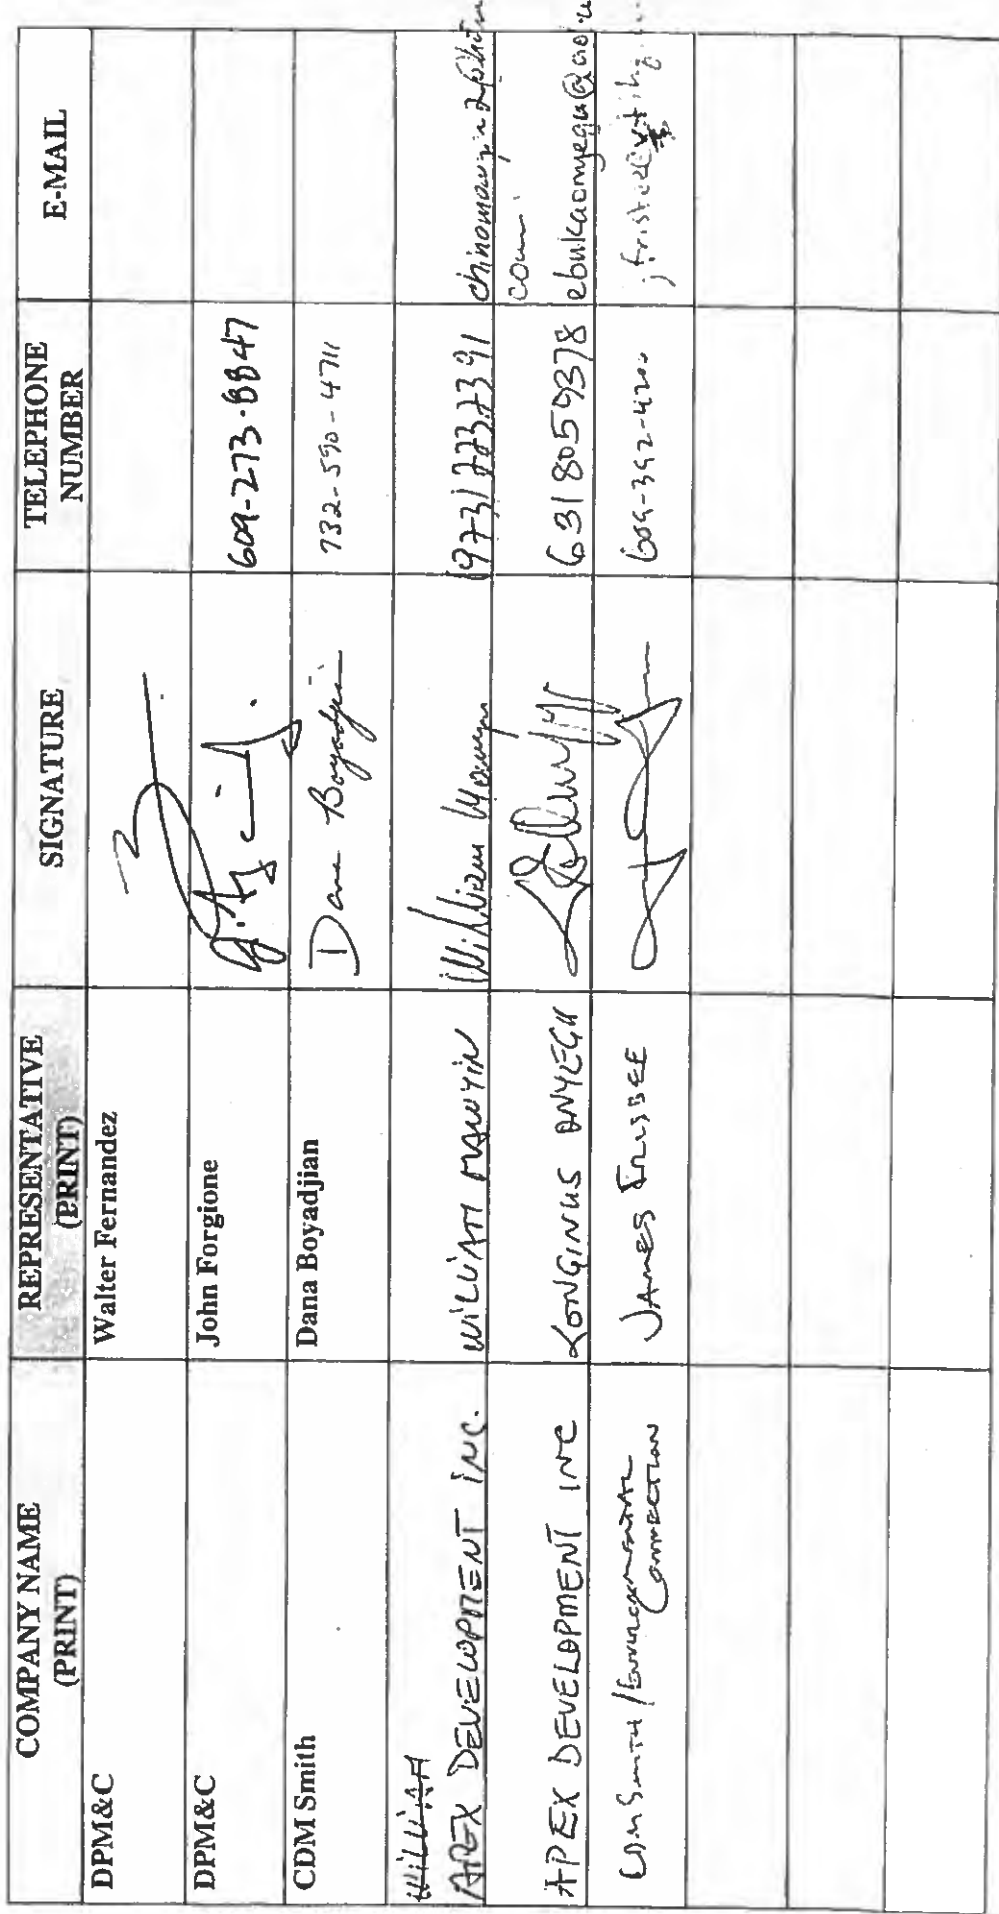 COMPANY NAME (PRINT)
REPRESENTATIVE (PRINT)
SIGNATURE
TELEPHONE NUMBER
E-MAIL
DPM&C
Walter Fernandez
DPM&C
John Forgione
609-273-8847
CDM Smith
Dana Boyadjian
Dana Boyadjian
732-590-4711
WILLIAM
APEX DEVELOPMENT INC.
WILLIAM MAWYIN
William
9731

com
APEX DEVELOPMENT INC
LONGINUS ONYEGU
6318059378
CDM Smith / Environmental Connection
JAMES FRISBEE
609-392-4200